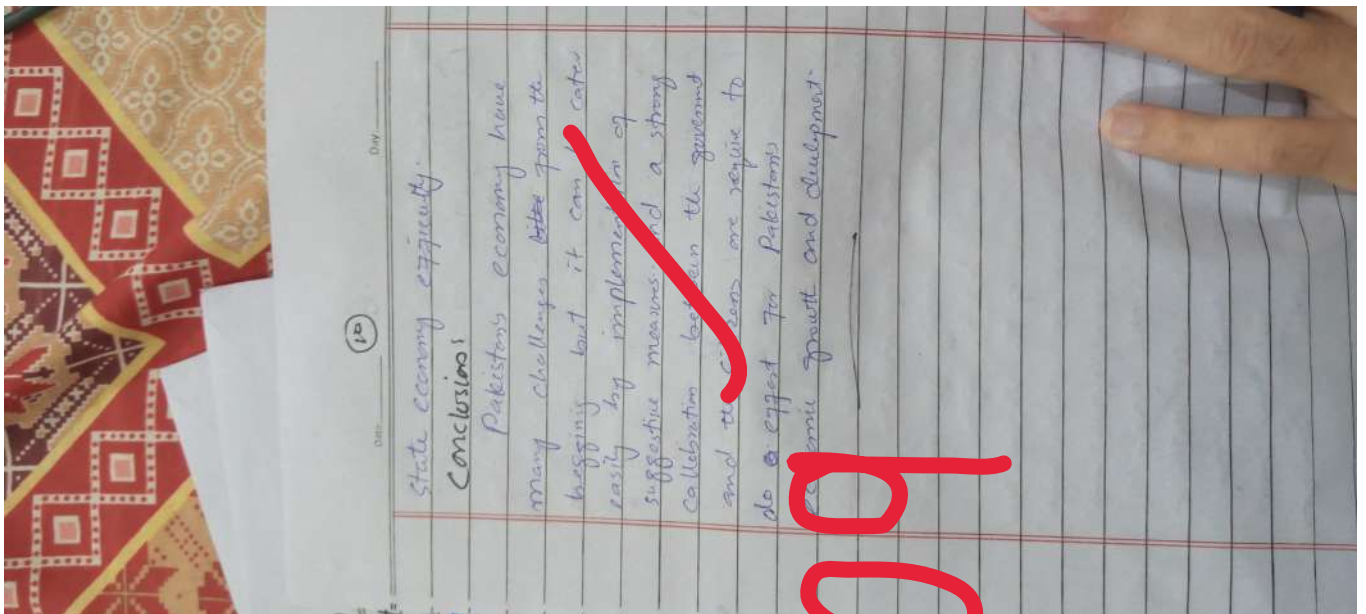 Date
Day
10
State economy effiecutly.
Conclusion:
Pakistans economy have
many challenges from the
beggining but it can cater
easily by implementation of
suggestive measures. and a strong
Callobration between the goverment
and the citizens are require to
do effort For Pakistans
economic growth and development.